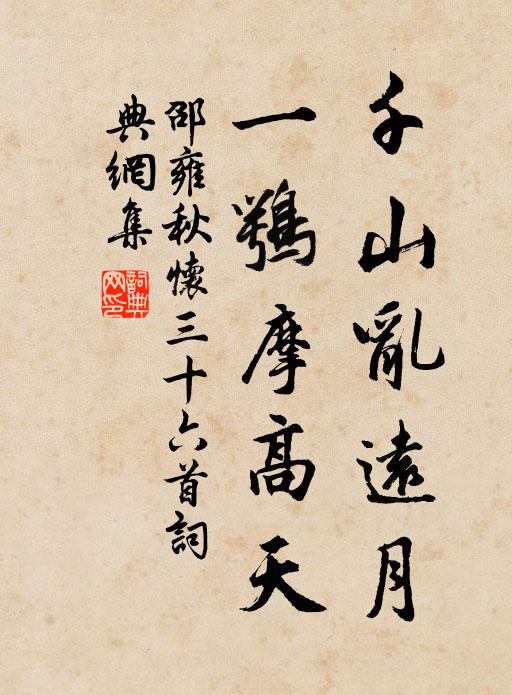 千山亂遠月
一鶚摩高天
邵雍秋懷三十六首詞
典網集
詞典
网印